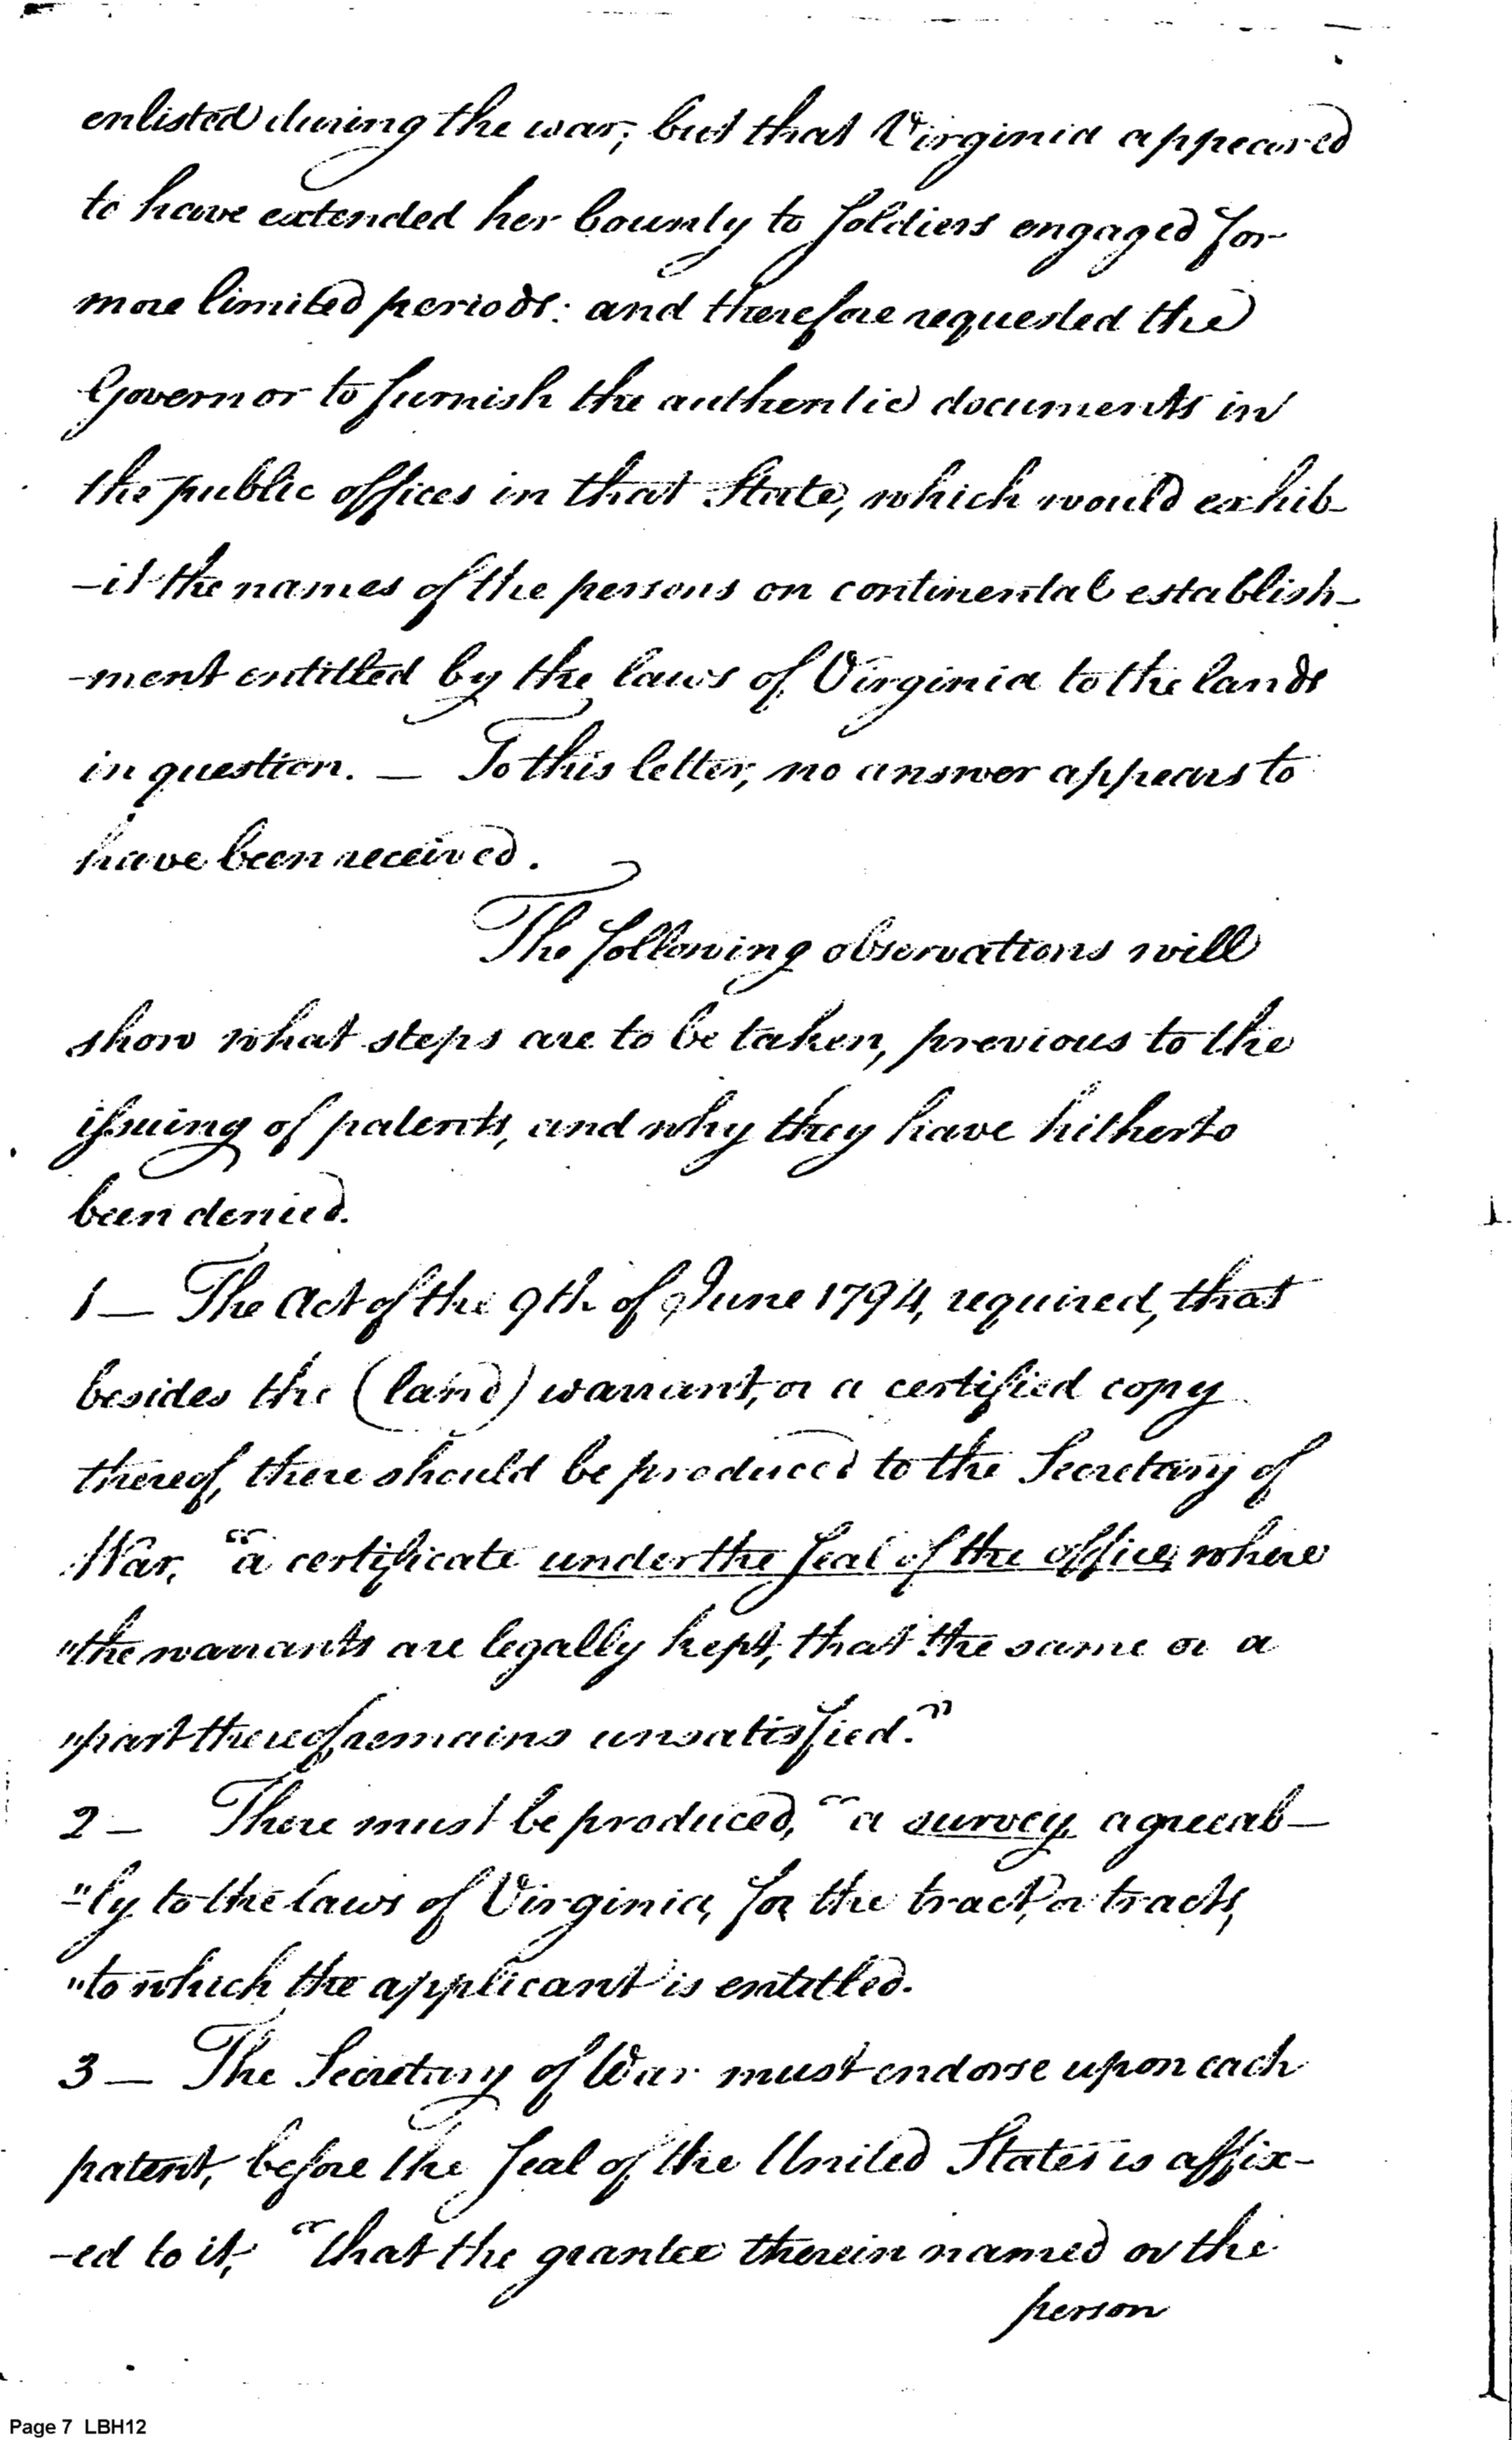 enlisted during the war; but that Virginia appeared
to have extended her bounty to soldiers engaged for
more limited periods: and therefore requested the
Governor to furnish the authentic documents in
the public offices in that State, which would exhib-
-it the names of the persons on continental establish-
-ment entitled by the laws of Virginia to the lands
in question. — To this letter, no answer appears to
have been received.
The following observations will
show what steps are to be taken, previous to the
issuing of patents, and why they have hitherto
been denied.
1 — The Act of the 9th of June 1794, required, that
besides the (land) warrant, or a certified copy
thereof, there should be produced to the Secretary of
War, "a certificate under the seal of the office, where
"the warrants are legally kept, that the same or a
"part thereof remains unsatisfied."
2 — There must be produced, "a survey, agreeab-
"ly to the laws of Virginia, for the tract, or tracts,
"to which the applicant is entitled.
3 — The Secretary of War must endorse upon each
patent, before the seal of the United States is affix-
-ed to it, "that the grantee therein named or the
person
Page 7 LBH12